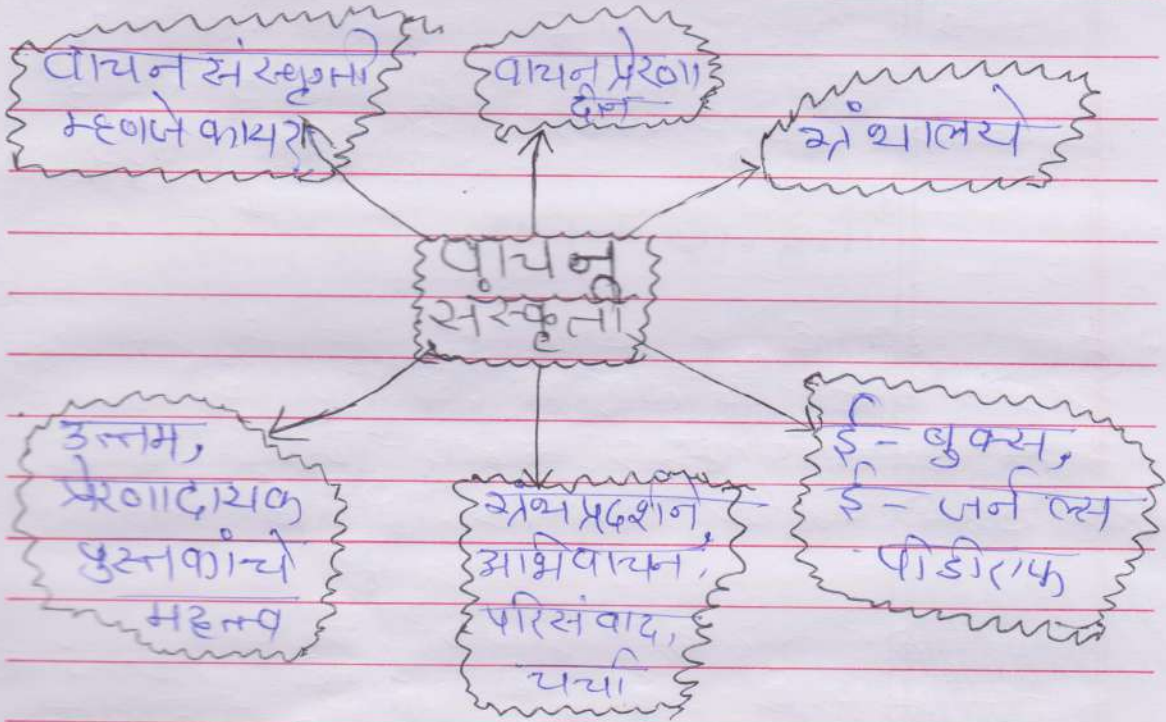 वाचन संस्कृती
म्हणजे काय?
वाचन प्रेरणा
दीन
ग्रंथालये
वाचन
संस्कृती
उत्तम,
प्रेरणादायक
पुस्तकांचे
महत्त्व
ग्रंथ प्रदर्शने,
अभिवाचन,
परिसंवाद,
चर्चा
ई - बुक्स,
ई - जर्नल्स
पीडीएफ